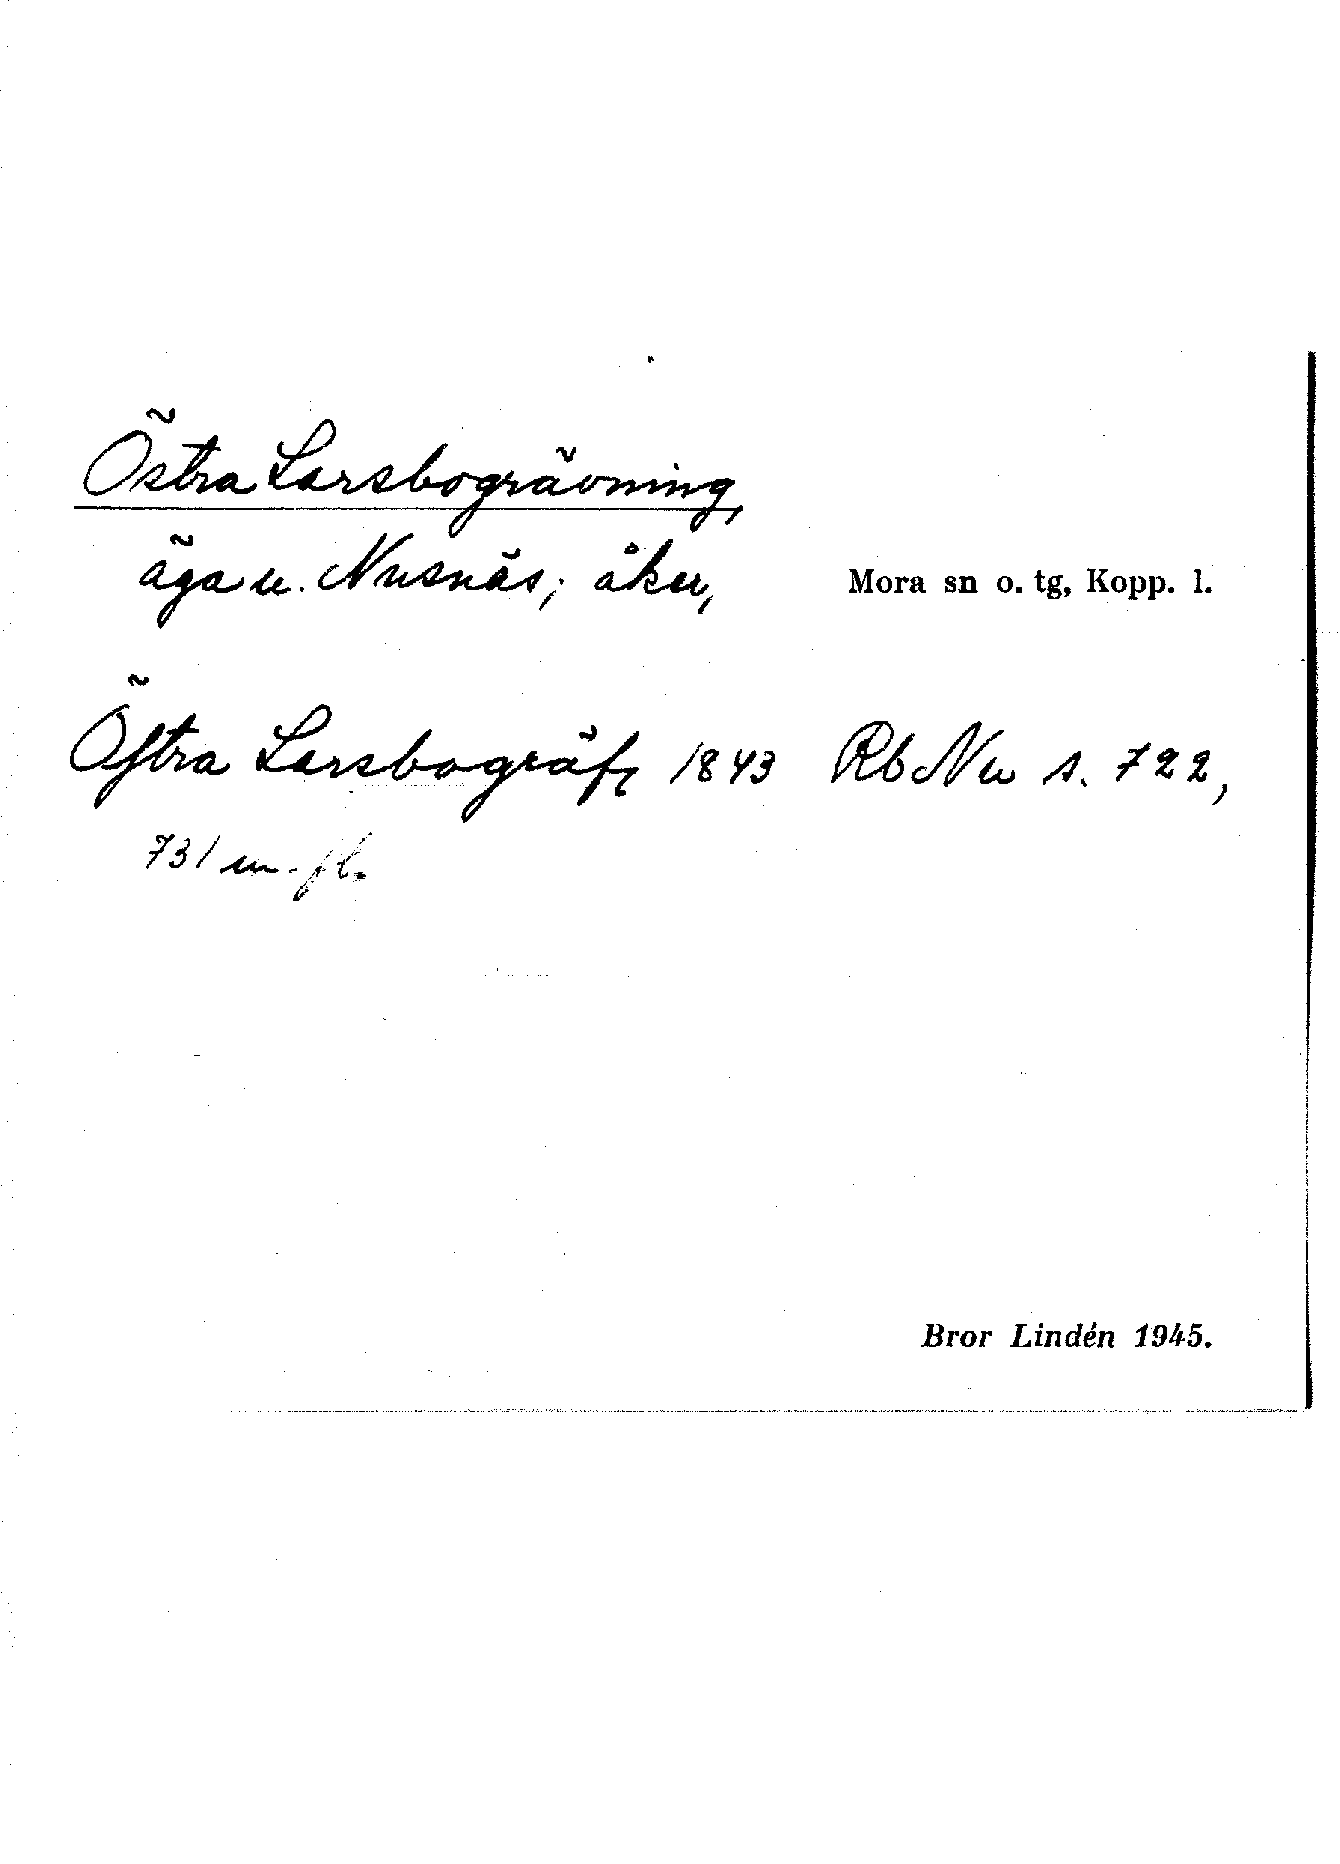 Östra Larsbogrävning,
äga u. Nusnäs; åker,
Mora sn o. tg, Kopp. l.
Östra Larsbogräfn 1843 Rb Nu s. 722,
731 m. fl.
Bror Lindén 1945.